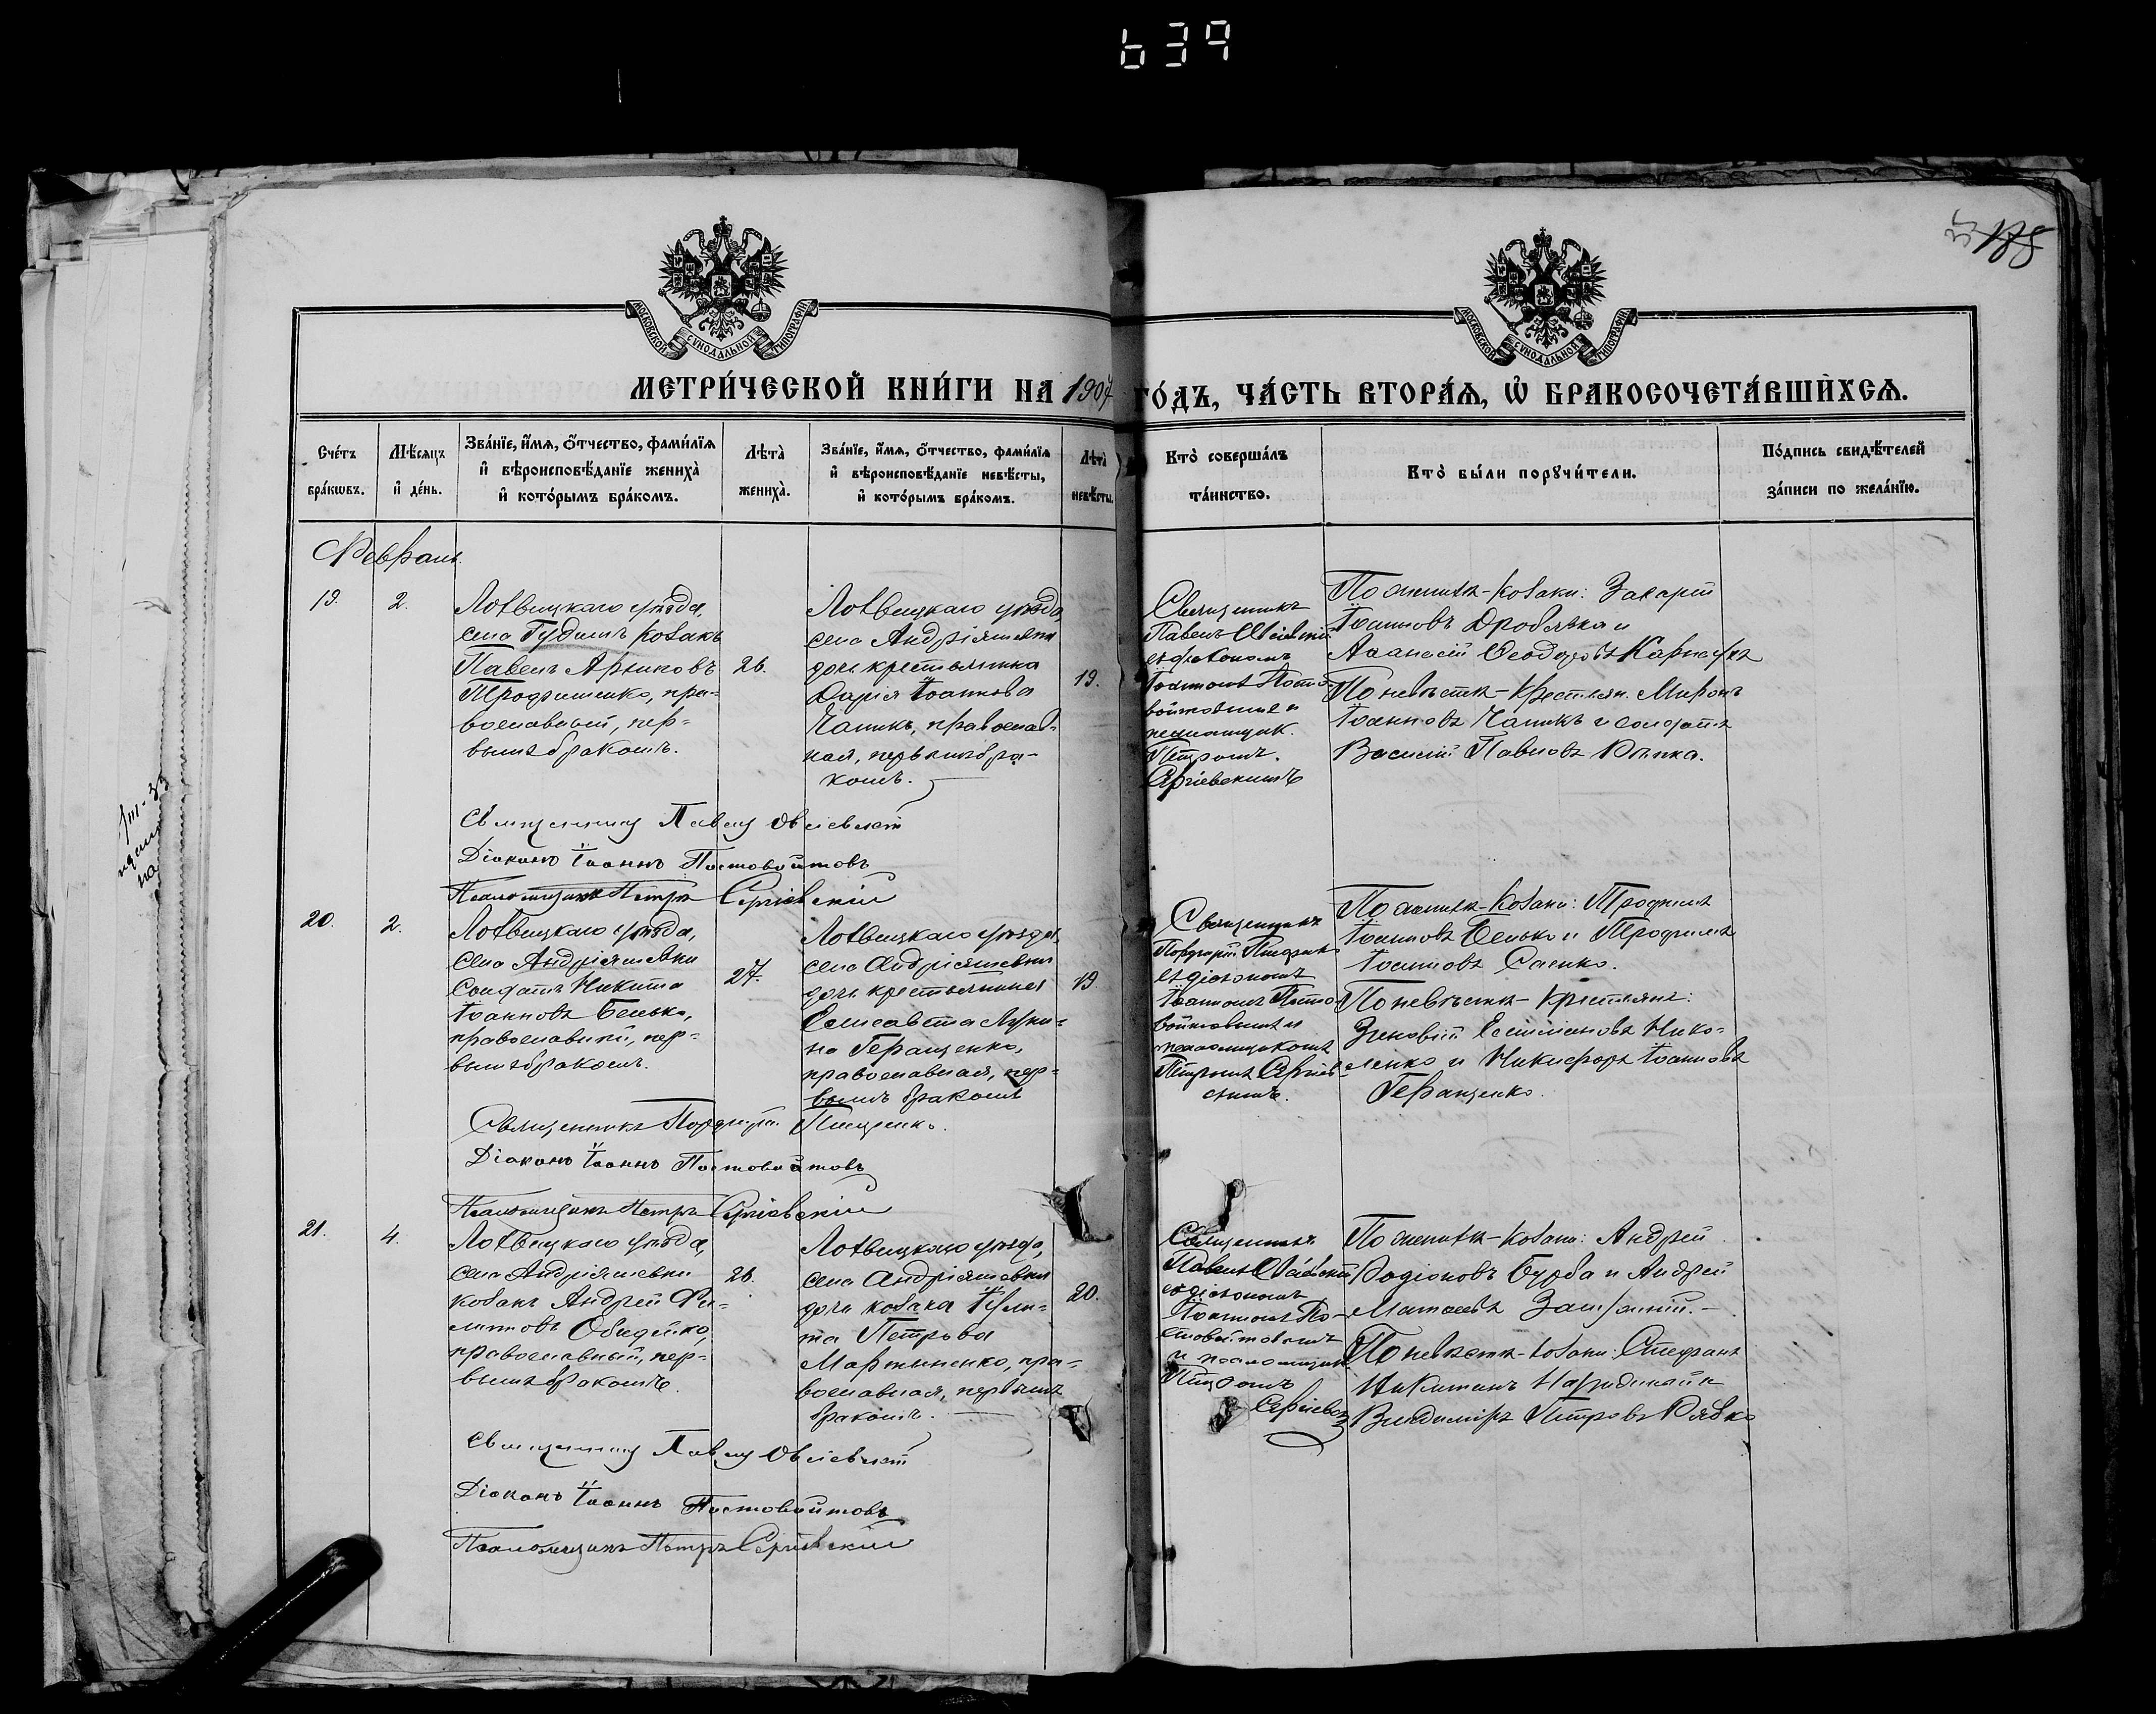 639
178
МОСКОВСКОЙ СѴНОДАЛЬНОЙ ТИПОГРАФІИ
МОСКОВСКОЙ СѴНОДАЛЬНОЙ ТИПОГРАФІИ
МЕТРИ́ЧЕСКОЙ КНИ́ГИ НА 1907 ГО́ДЪ, ЧА́СТЬ ВТОРА́Ѧ, Ѡ҆ БРАКОСОЧЕТА́ВШИХСѦ.
Сче́тъ бра́кѡвъ.
Мѣ́сѧцъ и҆ де́нь.
Зва́нїе, и҆́мѧ, ѻ҆́тчество, фами́лїѧ
и҆ вѣроисповѣ́данїе жениха̀
и҆ кото́рымъ бра́комъ.
Лѣта̀ жениха̀.
Зва́нїе, и҆́мѧ, ѻ҆́тчество, фами́лїѧ
и҆ вѣроисповѣ́данїе невѣ́сты,
и҆ кото́рымъ бра́комъ.
Лѣта̀ невѣ́сты.
Кто̀ соверша́лъ
та́инство.
Кто̀ бы́ли порꙋчи́тели.
По́дпись свидѣ́телей
за́писи по жела́нїю.
Февраль.
19.
2.
Лохвицкаго уѣзда,
села Гудимъ козакъ
Павелъ
Трофименко, пра-
вославный, пер-
вымъ бракомъ.
26.
Лохвицкаго уѣзда
села Андріяшевки
дочь крестьянина
Дарія Іоаннова
Чапикъ, православ-
ная, первымъ бра-
комъ.
19.
Священникъ
Павелъ
съ діакономъ
Іоанномъ Посто-
войтовымъ и
псаломщик.
Петромъ
Сергіевскимъ
По женихѣ - козаки: Захарій
Іоанновъ Дробязка и
Аѳанасій Ѳеодоровъ
По невѣстѣ - крестьян. Миронъ
Іоанновъ Чапикъ и солдатъ
Василій Павловъ Рѣпка.
Священникъ Павелъ
Діаконъ Іоаннъ Постовойтовъ
Псаломщикъ Петръ Сергіевскій
20.
2.
Лохвицкаго уѣзда,
села Андріяшевки
солдатъ Никита
Іоанновъ Белько,
православный, пер-
вымъ бракомъ.
27.
Лохвицкаго уѣзда,
села Андріяшевки
дочь крестьянина
Елисавета Луки-
на Геращенко,
православная, пер-
вымъ бракомъ
19
Священникъ
Порфирій
съ діакономъ
Іоанномъ Посто-
войтовымъ и
псаломщикомъ
Петромъ Сергіев-
скимъ.
По женихѣ - козаки: Трофимъ
Іоанновъ Белько и Трофимъ
Іоанновъ Саенко.
По невѣстѣ - крестьяне:
Зиновій Нико-
ленко и Никифоръ Іоанновъ
Геращенко.
Священникъ Порфирій
Діаконъ Іоаннъ Постовойтовъ
Псаломщикъ Петръ Сергіевскій
21.
4.
Лохвицкаго уѣзда,
села Андріяшевки
козакъ Андрей Фи-
липповъ
православный, пер-
вымъ бракомъ.
26.
Лохвицкаго уѣзда,
села Андріяшевки
дочь козака Іули-
та Петрова
Мартыненко, пра-
вославная, первымъ
бракомъ.
20.
Священникъ
Павелъ
съ діакономъ
Іоанномъ По-
стовойтовымъ
и псаломщик.
Петромъ
По женихѣ - козаки: Андрей
Родіоновъ Бурба и Андрей
По невѣстѣ - козаки: Стефанъ
Никитинъ
Владиміръ Петровъ
Священникъ Павелъ
Діаконъ Іоаннъ Постовойтовъ
Псаломщикъ Петръ Сергіевскій